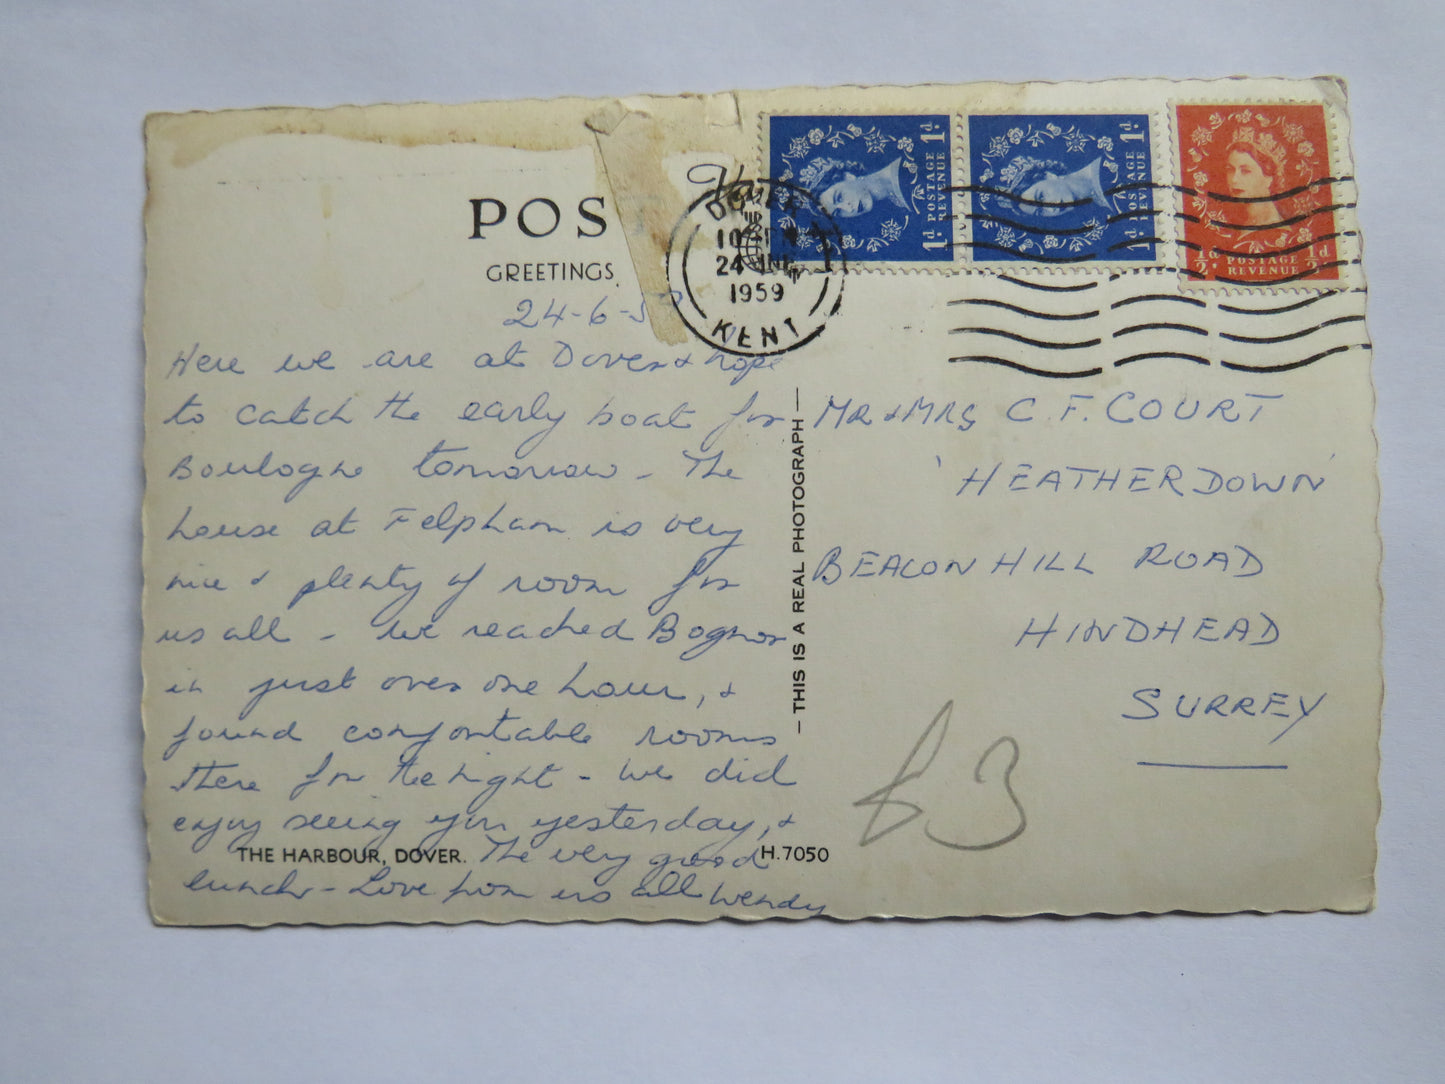 POS
GREETINGS
24-6-5
Here we are at Dover & hope
to catch the early boat for
Boulogne tomorrow - The
house at Felpham is very
nice & plenty of room for
us all - We reached Bognor
in just over one hour, &
found comfortable rooms
there for the night - We did
enjoy seeing you yesterday, &
THE HARBOUR, DOVER. The very good H.7050
lunch - Love from us all Wendy
— THIS IS A REAL PHOTOGRAPH —
DOVER
24 JNE
1959
KENT
1d. POSTAGE REVENUE 1d.
1d. POSTAGE REVENUE 1d.
½d. POSTAGE REVENUE ½d.
MR & MRS C. F. COURT
'HEATHERDOWN'
BEACON HILL ROAD
HINDHEAD
SURREY
£3